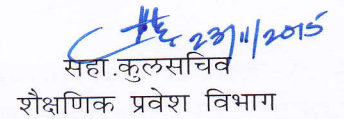 23/11/2015
सहा.कुलसचिव
शैक्षणिक प्रवेश विभाग